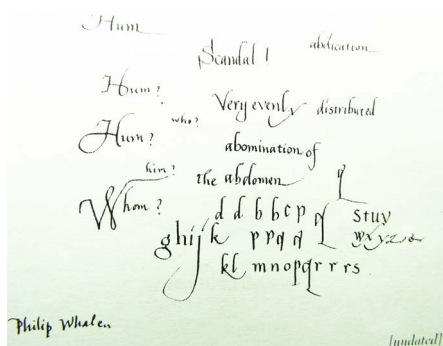 Hum
Scandal I abdication
Hum?
Very evenly distributed
who?
Hum?
abomination of
him?
the abdomen q
Whom?
d d b b c p q stuv
ghijk p p q q wxyz&
kl mnopqr r rs
Philip Whalen
[undated]